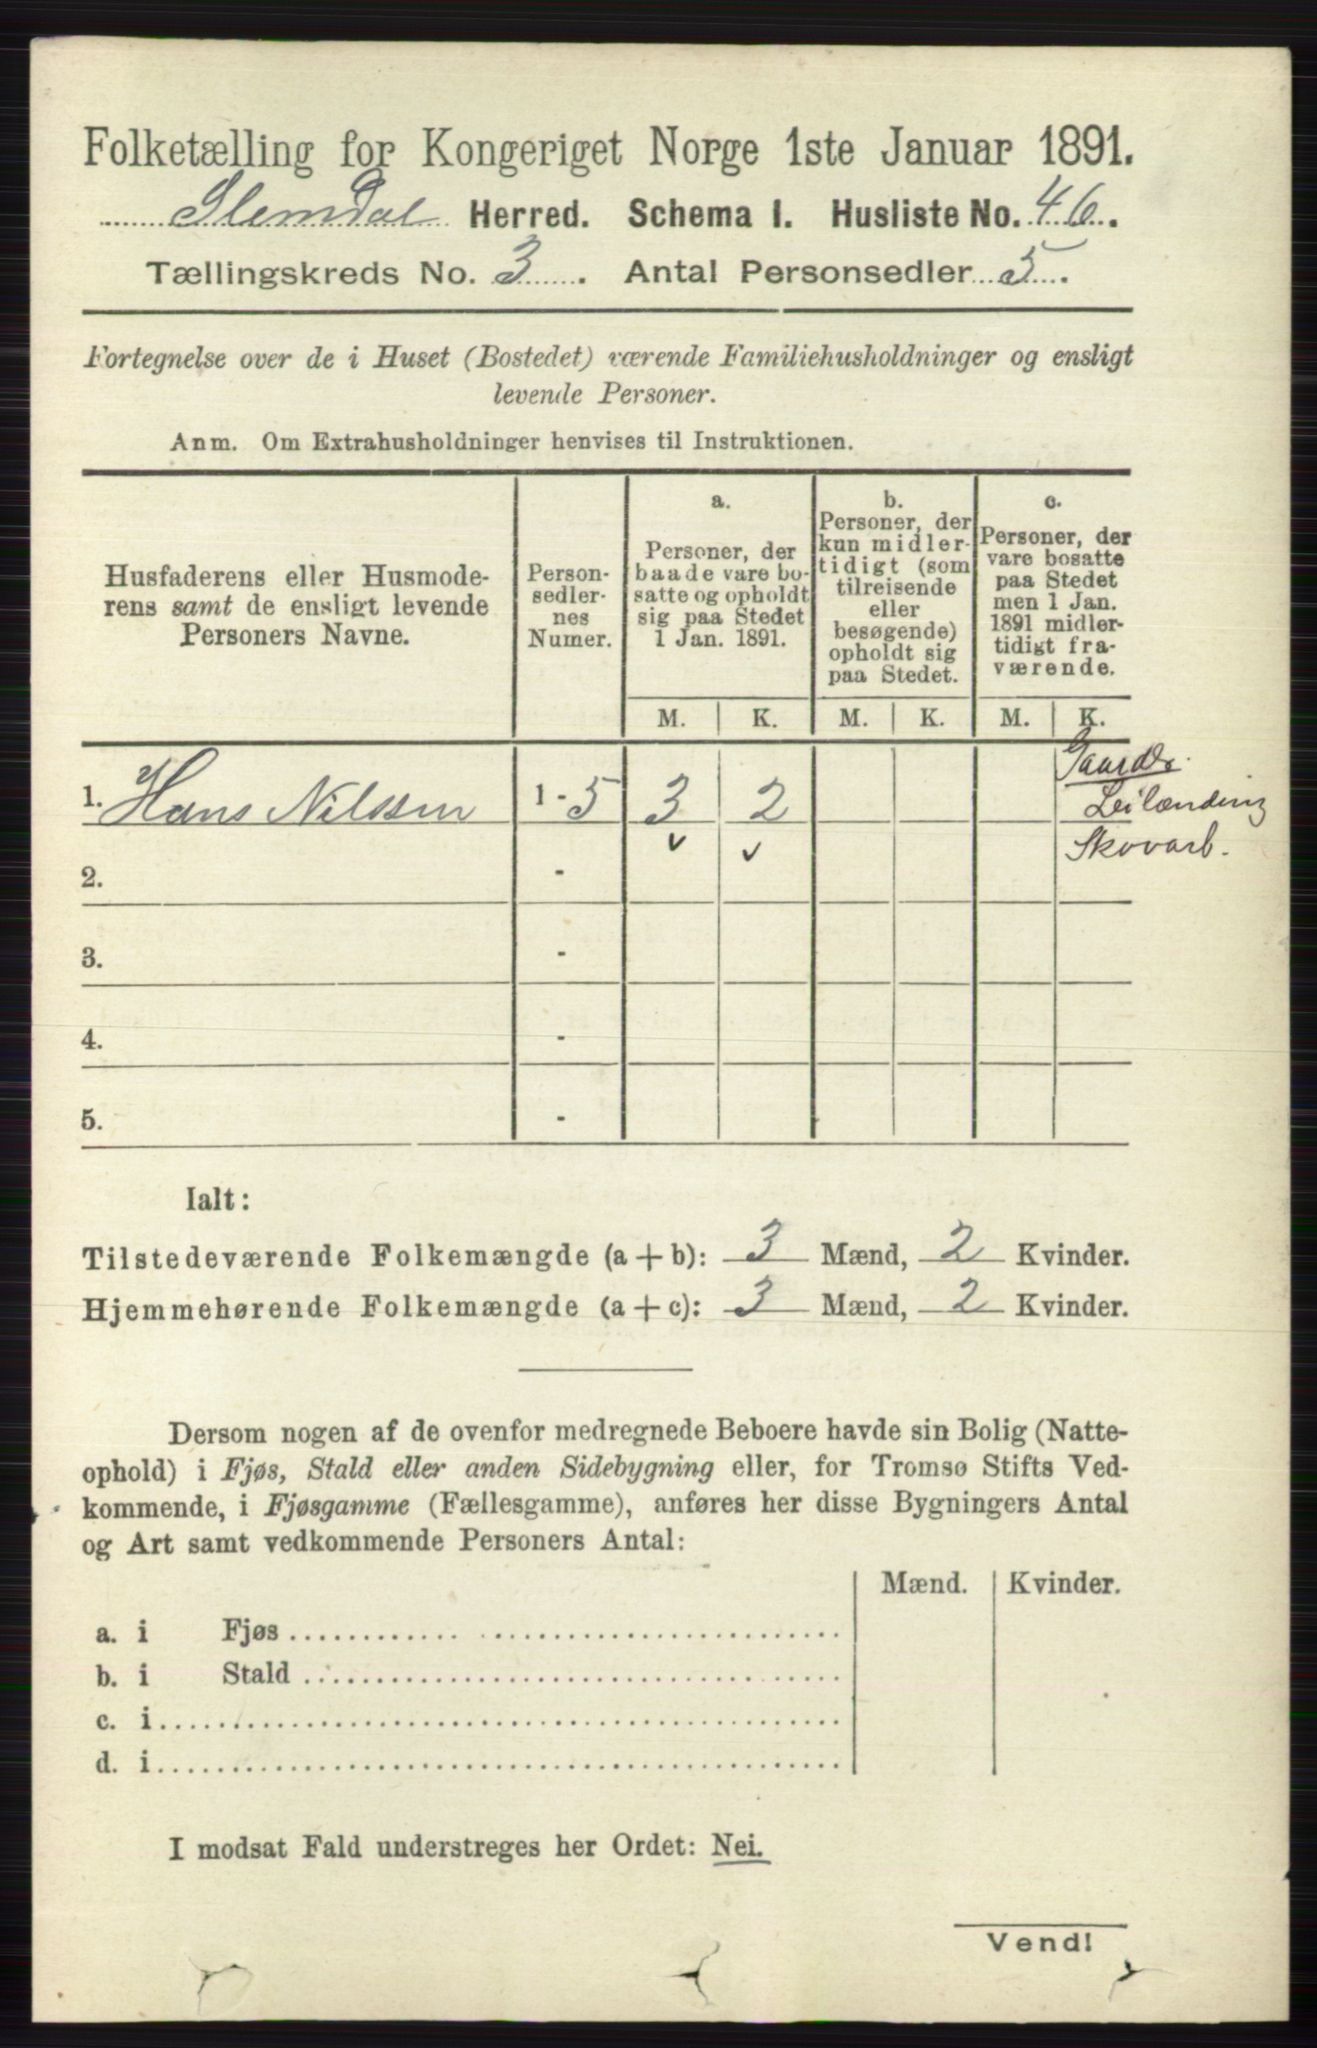 Folketælling for Kongeriget Norge 1ste Januar 1891.
Slemdal Herred. Schema I. Husliste No. 46.
Tællingskreds No. 3. Antal Personsedler 5.
Fortegnelse over de i Huset (Bostedet) værende Familiehusholdninger og ensligt
levende Personer.
Anm. Om Extrahusholdninger henvises til Instruktionen.
Husfaderens eller Husmode-
rens samt de ensligt levende
Personers Navne.
Person-
sedler-
nes
Numer.
a.
Personer, der
baade vare bo-
satte og opholdt
sig paa Stedet
1 Jan. 1891.
b.
Personer, der
kun midler-
tidigt (som
tilreisende
eller
besøgende)
opholdt sig
paa Stedet.
c.
Personer, der
vare bosatte
paa Stedet
men 1 Jan.
1891 midler-
tidigt fra-
værende.
M. K. M. K. M. K.
Gaardbr.
1. Hans Nilssen 1 - 5 3 2 Leilænding
Skovarb.
2. -
3. -
4. -
5. -
Ialt:
Tilstedeværende Folkemængde (a + b): 3 Mænd, 2 Kvinder.
Hjemmehørende Folkemængde (a + c): 3 Mænd, 2 Kvinder.
Dersom nogen af de ovenfor medregnede Beboere havde sin Bolig (Natte-
ophold) i Fjøs, Stald eller anden Sidebygning eller, for Tromsø Stifts Ved-
kommende, i Fjøsgamme (Fællesgamme), anføres her disse Bygningers Antal
og Art samt vedkommende Personers Antal:
Mænd. Kvinder.
a. i Fjøs
b. i Stald
c. i
d. i
I modsat Fald understreges her Ordet: Nei.
Vend!